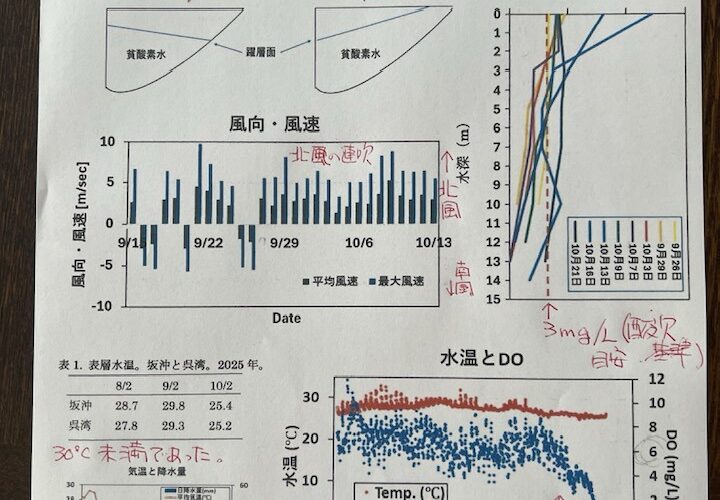 貧酸素水
躍層面
貧酸素水
風向・風速
北風の連吹
風向・風速 [m/sec]
10
5
0
-5
-10
9/15
9/22
9/29
10/6
10/13
平均風速
最大風速
Date
↑北風
南風↓
水深 (m)
0
1
2
3
4
5
6
7
8
9
10
11
12
13
14
15
9月26日
9月29日
10月3日
10月7日
10月9日
10月13日
10月16日
10月21日
3mg/L (酸欠
目安 基準)
表 1. 表層水温。坂沖と呉湾。2025 年。
8/2 9/2 10/2
坂沖 28.7 29.8 25.4
呉湾 27.8 29.3 25.2
30℃未満であった。
気温と降水量
30
60
日降水量(mm)
平均気温(℃)
水温とDO
水温 (℃)
30
20
10
12
10
8
6
4
DO (mg/L)
Temp. (℃)